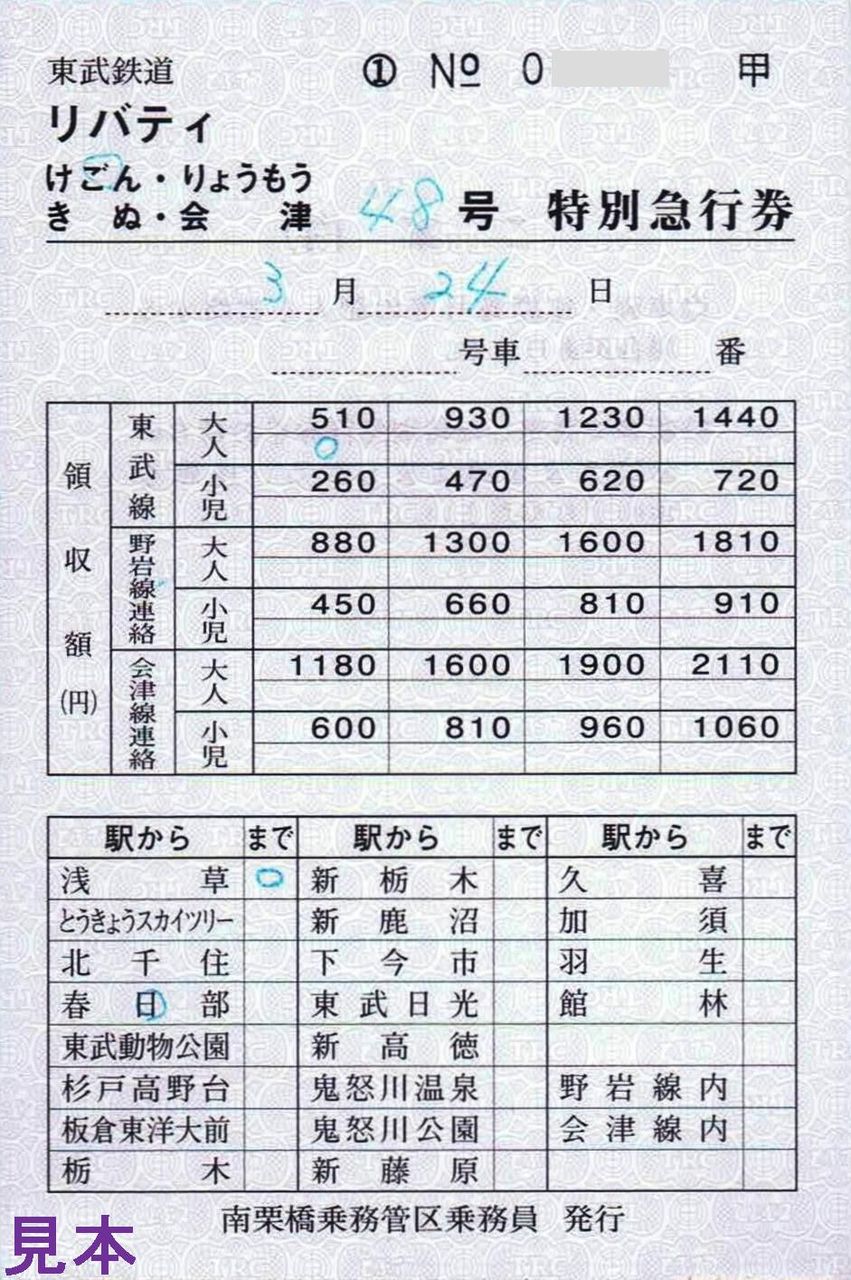 東武鉄道 ① № 0 甲
リバティ
けごん・りょうもう
きぬ・会津 48号 特別急行券
3月 24日
号車 番
領収額(円)
東武線 大人 510 930 1230 1440
○
小児 260 470 620 720
野岩線連絡 大人 880 1300 1600 1810
小児 450 660 810 910
会津線連絡 大人 1180 1600 1900 2110
小児 600 810 960 1060
駅から まで 駅から まで 駅から まで
浅草 ○ 新栃木 久喜
とうきょうスカイツリー 新鹿沼 加須
北千住 下今市 羽生
春日部 東武日光 館林
東武動物公園 新高徳
杉戸高野台 鬼怒川温泉 野岩線内
板倉東洋大前 鬼怒川公園 会津線内
栃木 新藤原
南栗橋乗務管区乗務員 発行
見本